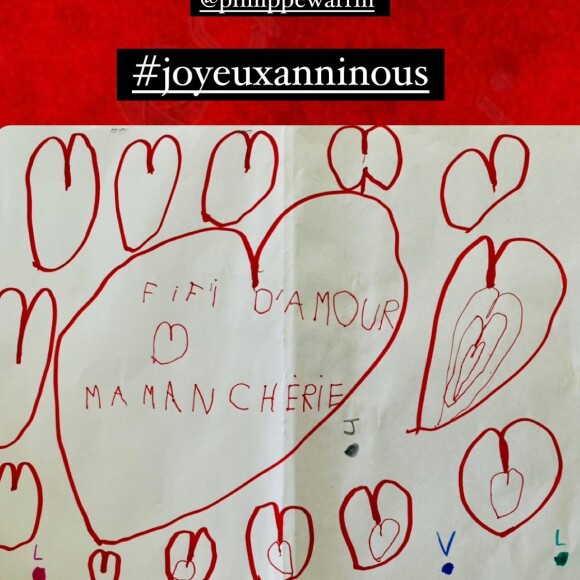 @philippewarrin
#joyeuxanninous
FiFi D'AMOUR
MAMAN CHÈRIE
J
L
V
L